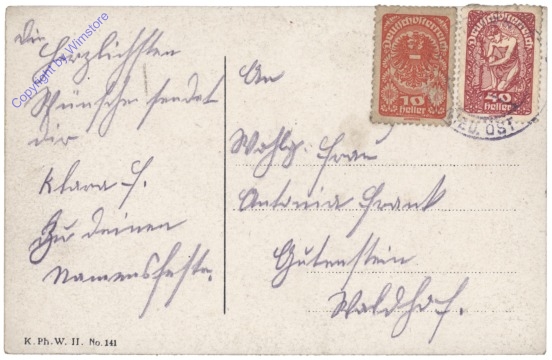 Die
herzlichsten
Wünsche sendet
dir
Klara F.
Zu deinen
Namensfeste.
K. Ph. W. II. No. 141
An
Wohlg. Frau
Antonia Frank
Gutenstein
Waldhof.
Deutschösterreich
10
heller
Deutschösterreich
50
heller
D. ÖST
Copyright by Wimstore